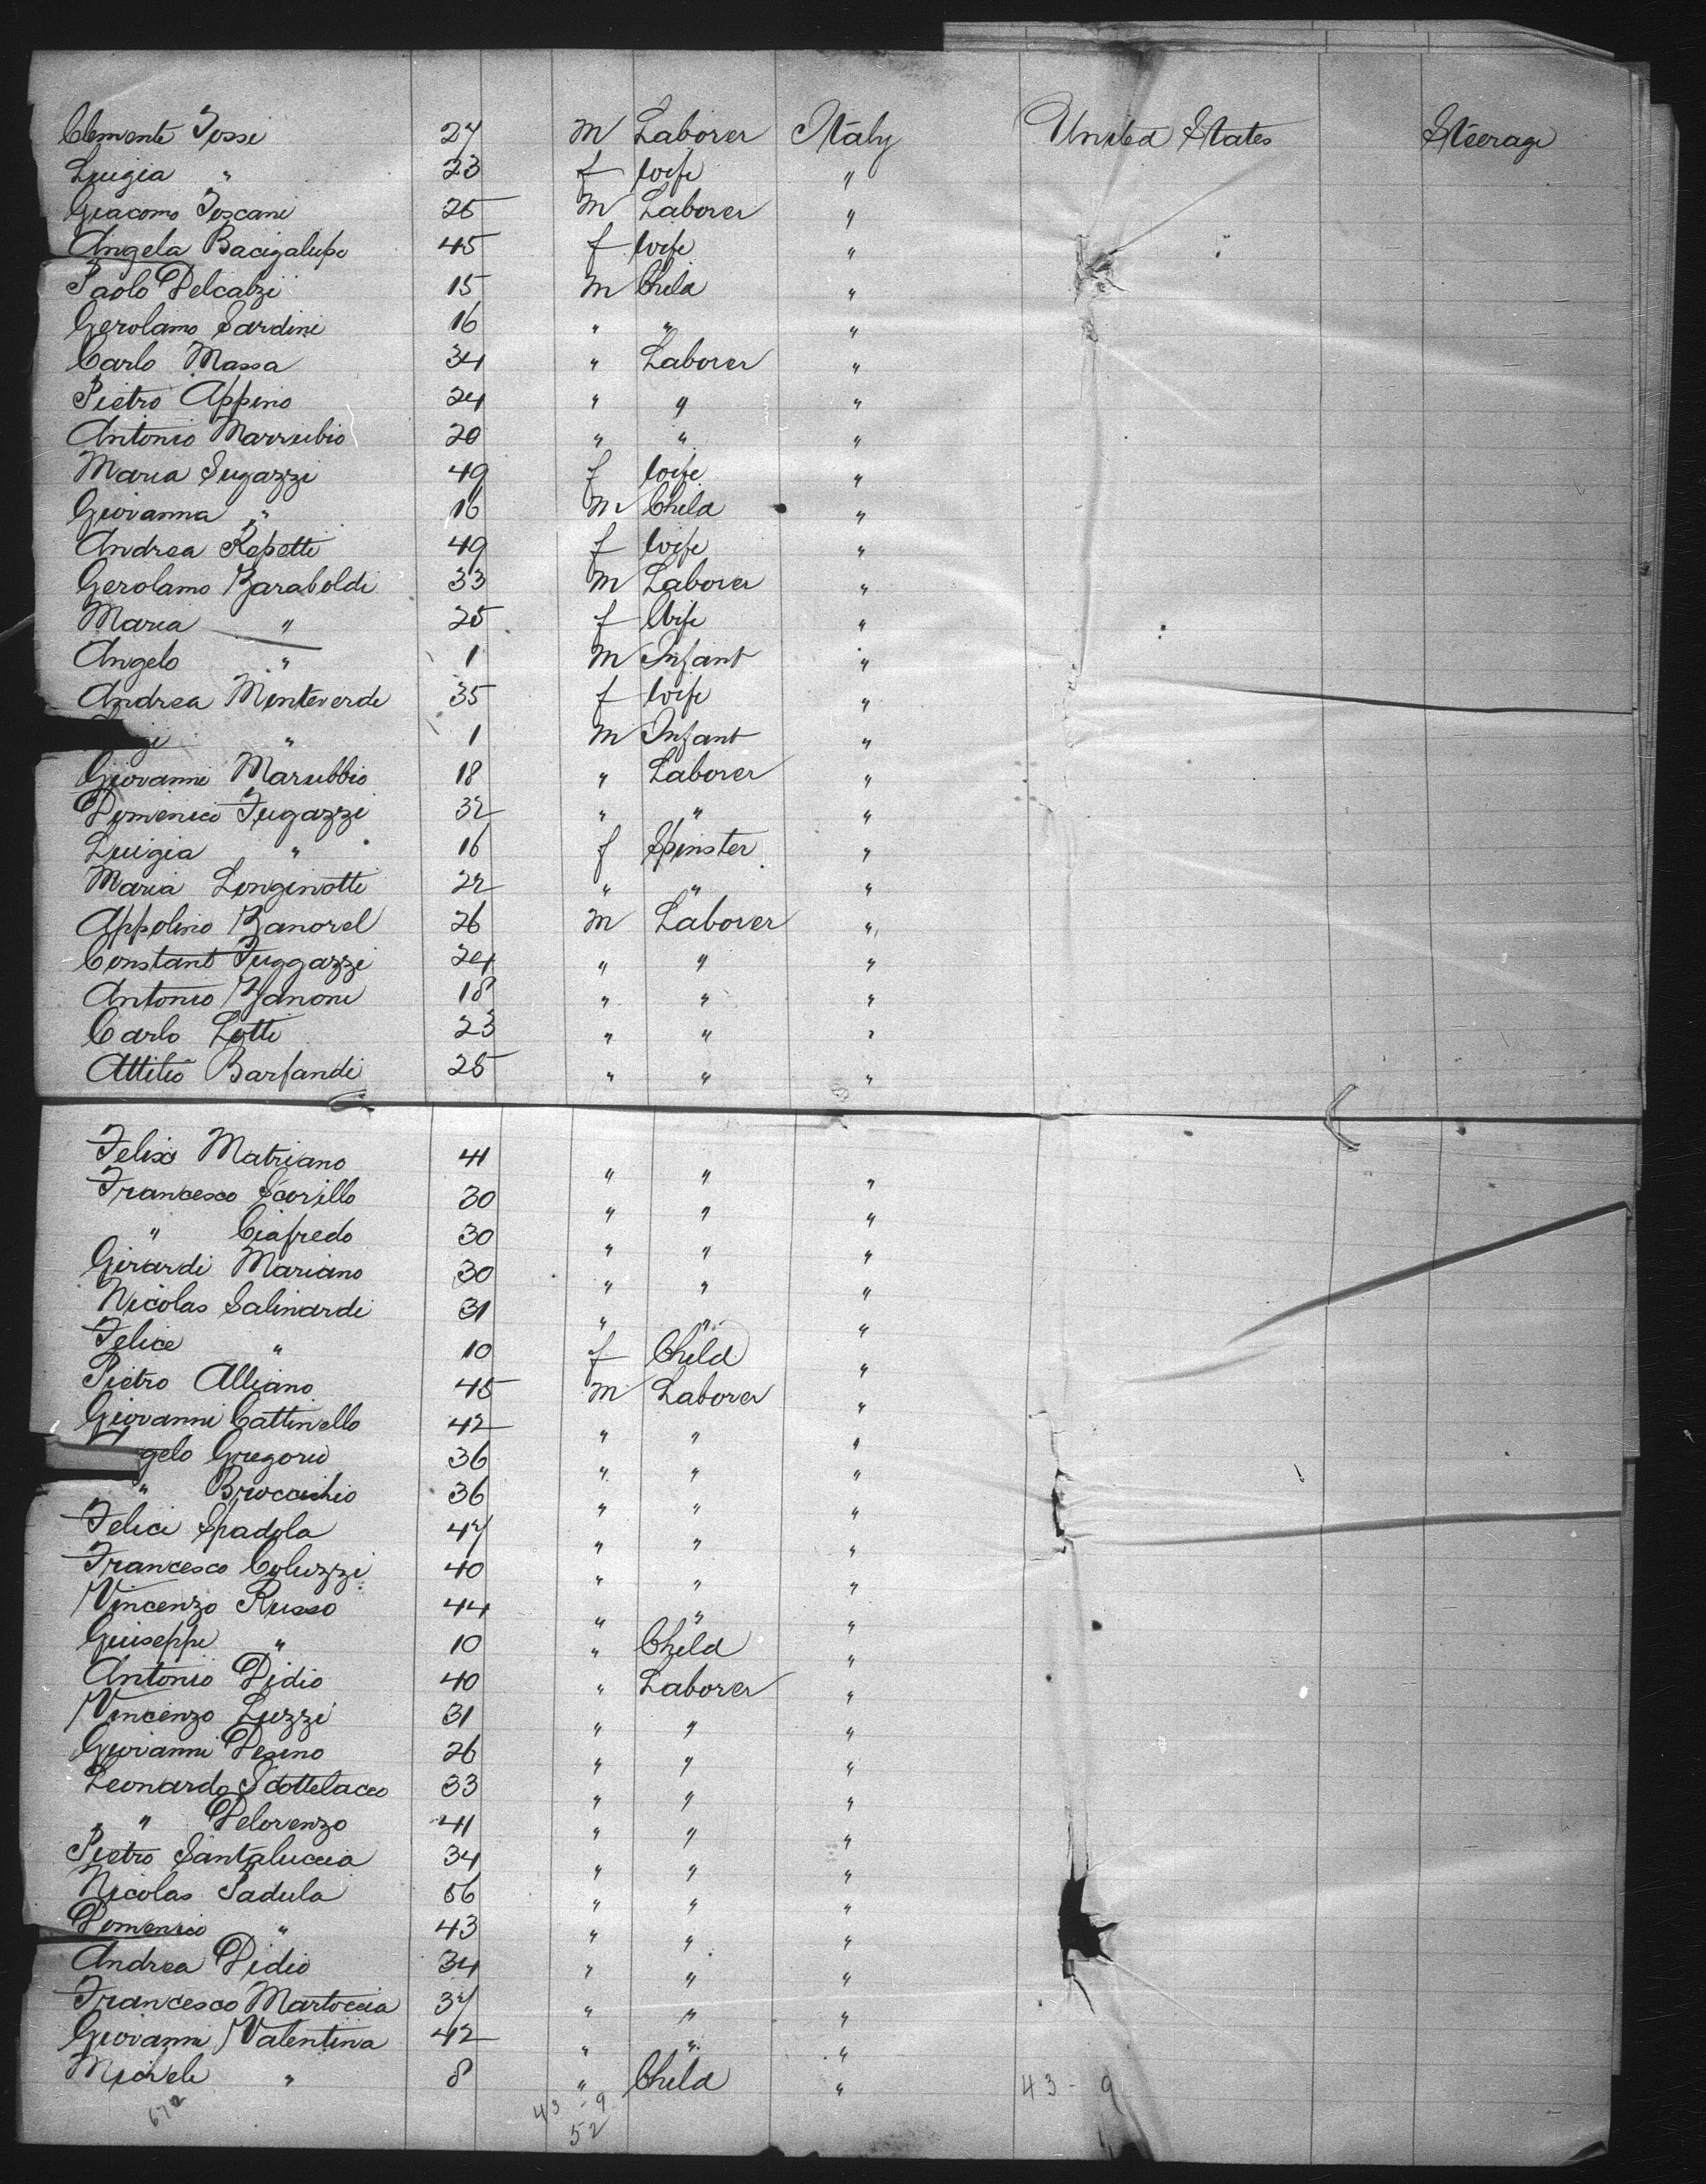 Clemente Tossi 27 M Laborer Italy United States Steerage
Luigia " 23 f Wife "
Giacomo Toscani 25 M Laborer "
Angela Bacigalupo 45 f Wife "
Paolo Delcalzi 15 M Child "
Gerolamo Sardini 16 " " "
Carlo Massa 34 " Laborer "
Pietro Appino 24 " " "
Antonio Marrubio 20 " " "
Maria Sugazzi 49 f Wife "
Giovanna " 16 M Child "
Andrea Repetti 49 f Wife "
Gerolamo Zaraboldi 33 M Laborer "
Maria " 25 f Wife "
Angelo " 1 M Infant "
Andrea Monteverde 35 f Wife "
gi " 1 M Infant "
Giovanni Marubbio 18 " Laborer "
Domenico Fugazzi 32 " " "
Luigia " 16 f Spinster "
Maria Longinotti 22 " " "
Appolino Zanorel 26 M Laborer "
Constant Fuggazzi 24 " " "
Antonio Zanoni 18 " " "
Carlo Lotti 23 " " "
Attilio Barfandi 25 " " "
Felix Matriano 41 " " "
Francesco Scorillo 30 " " "
" Ciafredo 30 " " "
Girardi Mariano 30 " " "
Nicolas Salinardi 31 " " "
Felice " 10 f Child "
Pietro Alliano 45 M Laborer "
Giovanni Cattinello 42 " " "
gelo Gregorio 36 " " "
" Broccichio 36 " " "
Felici Spadola 47 " " "
Francesco Coluzzi 40 " " "
Vincenzo Russo 44 " " "
Guiseppi " 10 " Child "
Antonio Didio 40 " Laborer "
Vincenzo Luzzi 31 " " "
Giovanni Pesino 26 " " "
Leonardo Scottelacco 33 " " "
" Delorenzo 41 " " "
Pietro Santaluccia 34 " " "
Nicolas Padula 56 " " "
Domenico " 43 " " "
Andrea Didio 34 " " "
Francesco Martoccia 37 " " "
Giovanni Valentina 42 " " "
Michele " 8 " Child "
672 43 - 9 43 - 9
52